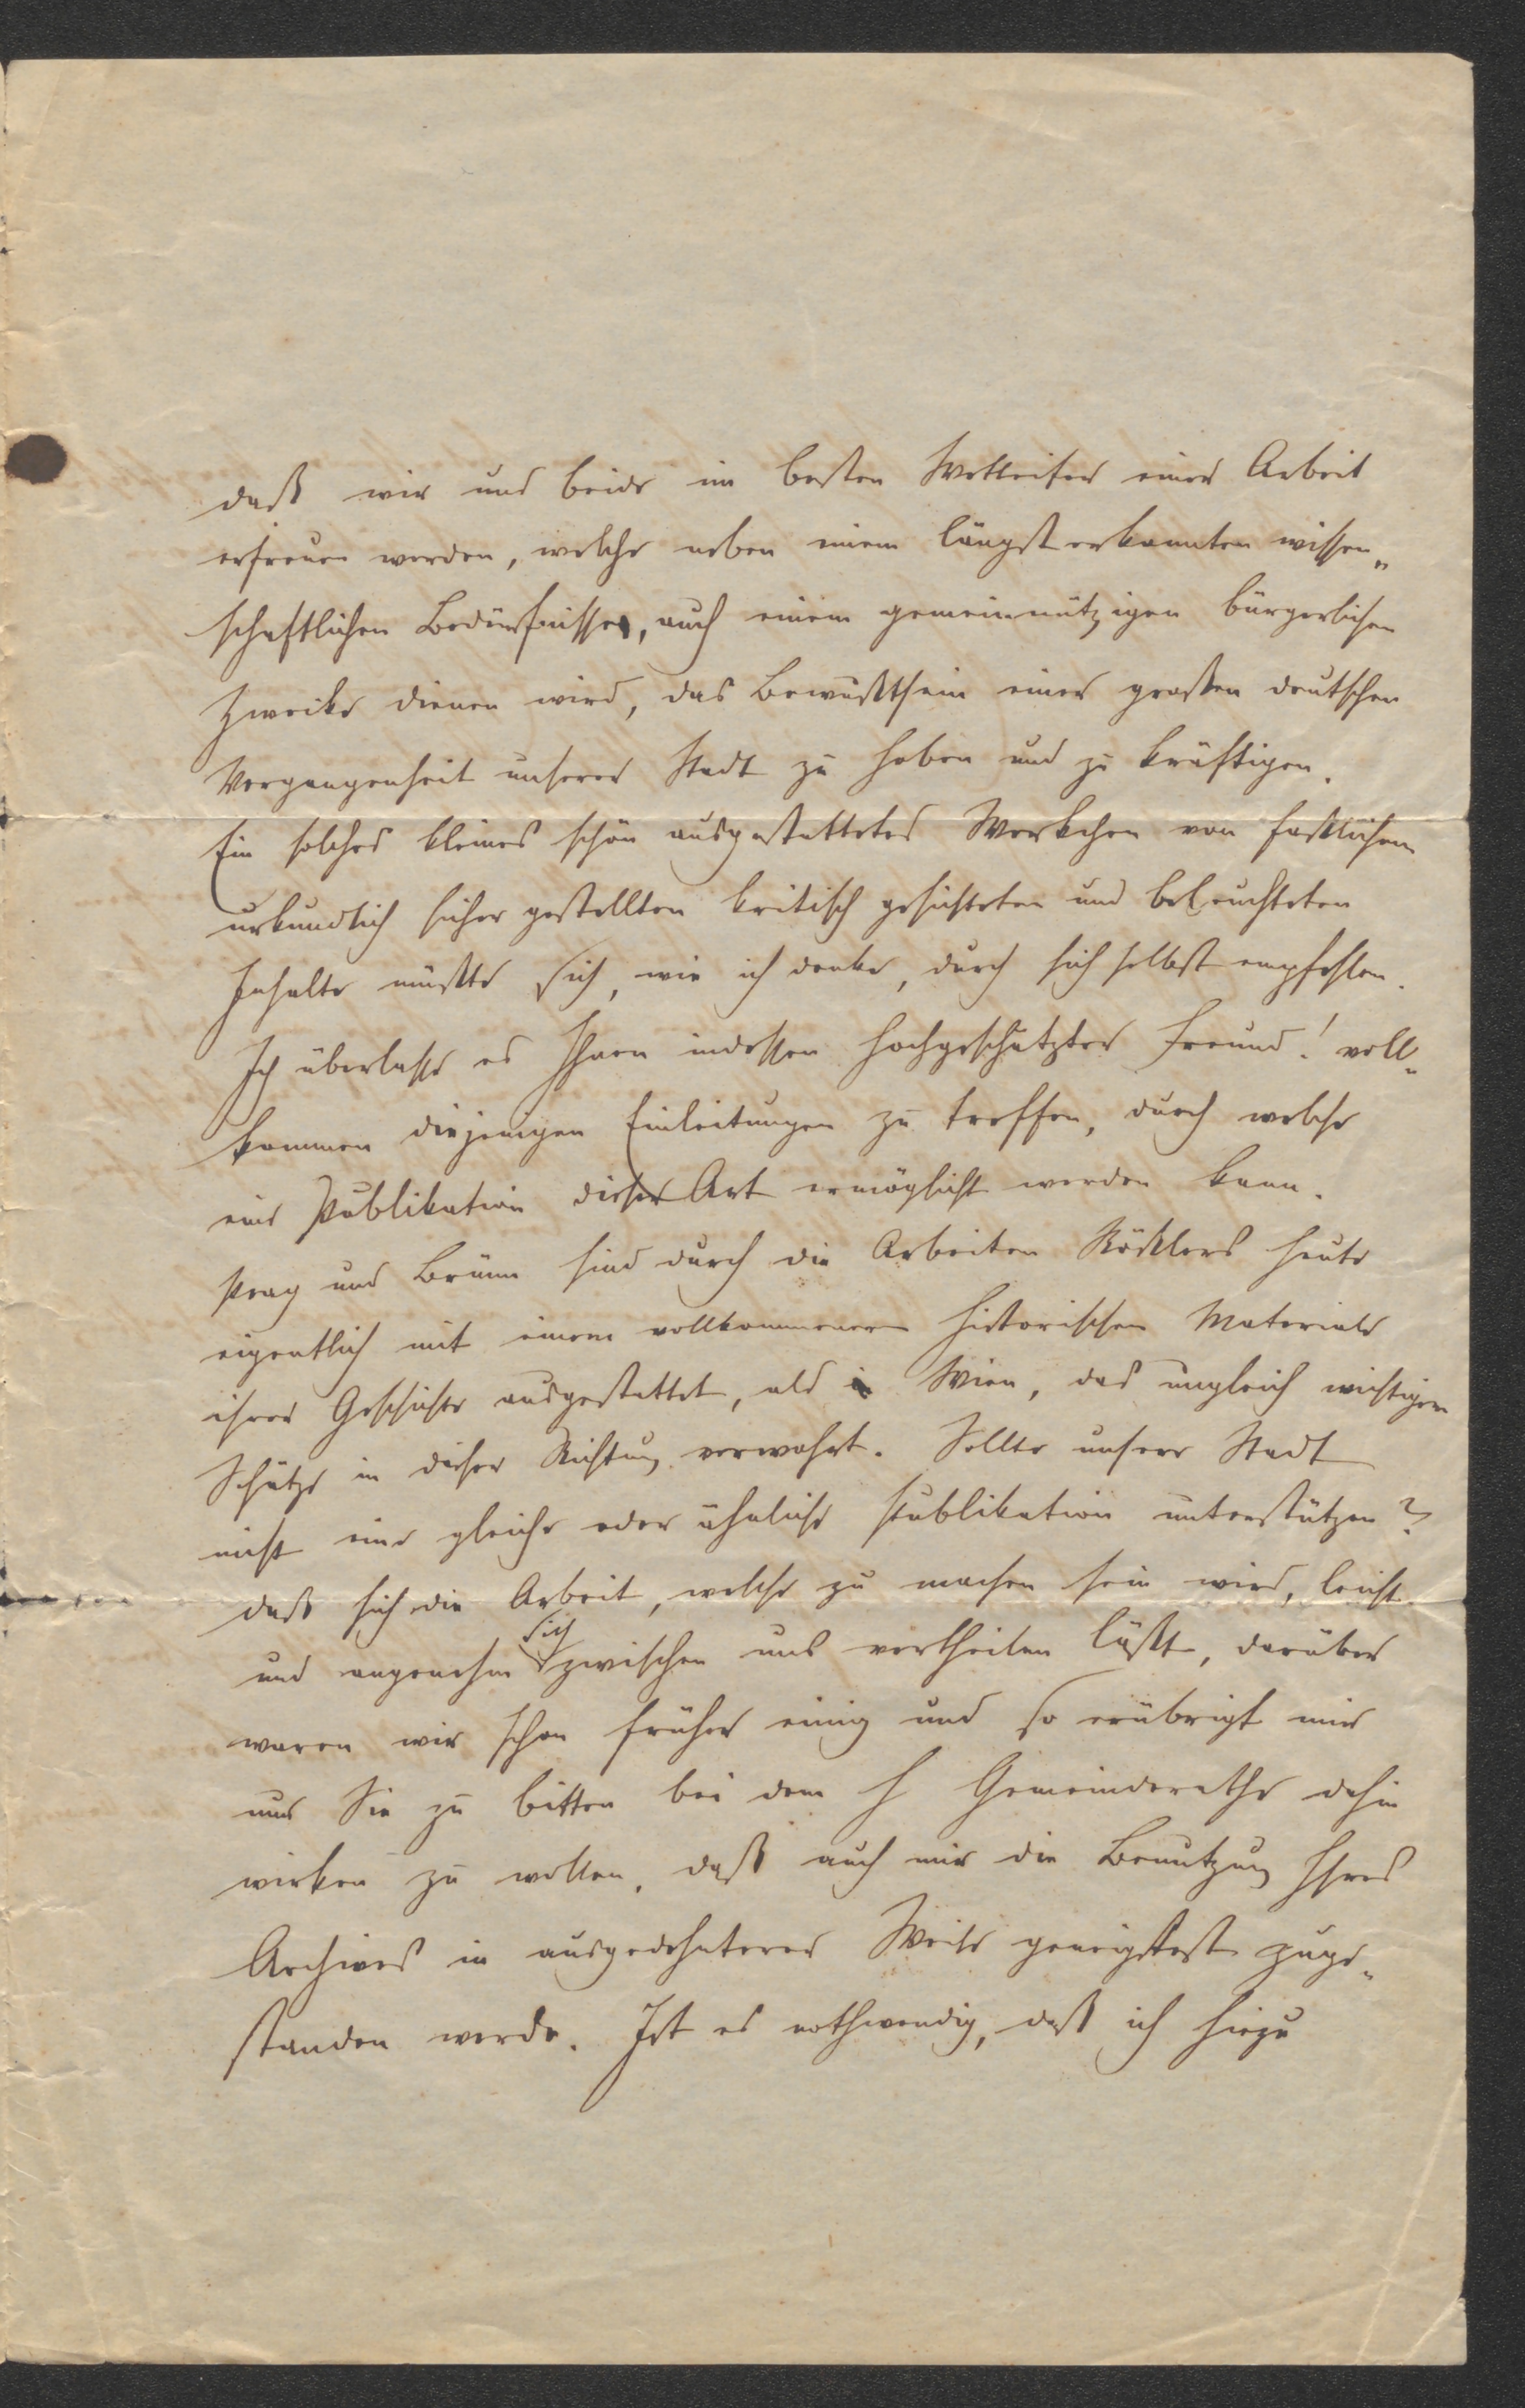 daß wir uns beide im besten Wetteifer einer Arbeit
erfreuen werden, welche neben einem längst erkannten wissen„
schaftlichen Bedürfnisse, auch einem gemeinnützigen bürgerlichen
Zwecke dienen wird, das Bewußtsein einer großen deutschen
Vergangenheit unserer Stadt zu heben und zu kräftigen.
Ein solches kleines schön ausgestattetes Werkchen von faßlichem
urkundlich sicher gestellten kritisch gesichteten und beleuchteten
Inhalte müßte sich, wie ich denke, durch sich selbst empfehlen.
Ich überlasse es Ihnen indessen hochgeschätzter Freund! voll„
kommen diejenigen Einleitungen zu treffen, durch welche
eine Publikation dieser Art ermöglicht werden kann.
Prag und Brünn sind durch die Arbeiten Rößlers heute
eigentlich mit einem vollkommenern historischen Materiale
ihrer Geschichte ausgestattet, als Wien, das ungleich wichtigere
Schätze in dieser Richtung verwahrt. Sollte unsere Stadt
nicht eine gleiche oder ähnliche Publikation unterstützen?
daß sich die Arbeit, welche zu machen sein wird, leicht
und angenehm sich zwischen uns vertheilen läßt, darüber
waren wir schon früher einig und so erübrigt mir
nur Sie zu bitten bei dem h Gemeinderathe dahin
wirken zu wollen, daß auch mir die Benutzung Ihres
Archives in ausgedehnterer Weise geneigtest zuge„
standen werde. Ist es nothwendig, daß ich hiezu